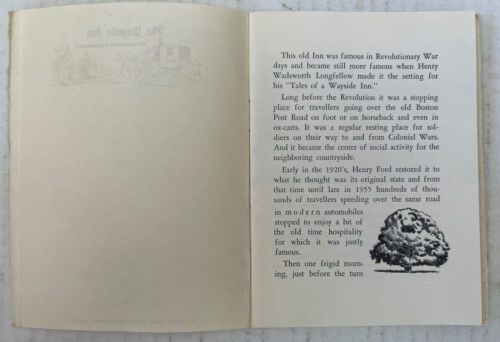 The Wayside Inn
This old Inn was famous in Revolutionary War
days and became still more famous when Henry
Wadsworth Longfellow made it the setting for
his "Tales of a Wayside Inn."
Long before the Revolution it was a stopping
place for travellers going over the old Boston
Post Road on foot or on horseback and even in
ox-carts. It was a regular resting place for sol-
diers on their way to and from Colonial Wars.
And it became the center of social activity for the
neighboring countryside.
Early in the 1920's, Henry Ford restored it to
what he thought was its original state and from
that time until late in 1955 hundreds of thou-
sands of travellers speeding over the same road
in modern automobiles
stopped to enjoy a bit of
the old time hospitality
for which it was justly
famous.
Then one frigid morn-
ing, just before the turn